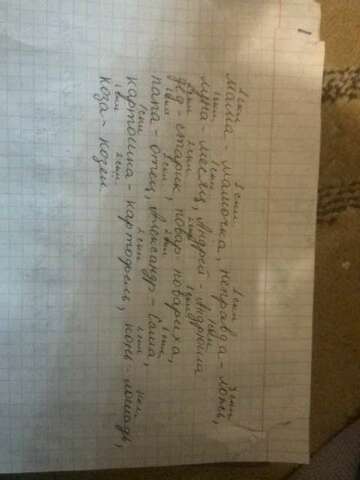 1 скл 1 скл 1 скл 3 скл
Мама - мамочка, неправда - ложь,
1 скл 2 скл 2 скл 1 скл
луна - месяц, Андрей - Андрюша
2 скл 2 скл 2 скл 1 скл
дед - старик, повар - повариха,
1 скл 2 скл 2 скл 1 скл
папа - отец, Александр - Саша,
1 скл 2 скл 2 скл 3 скл
картошка - картофель, конь - лошадь,
1 скл 2 скл
коза - козёл